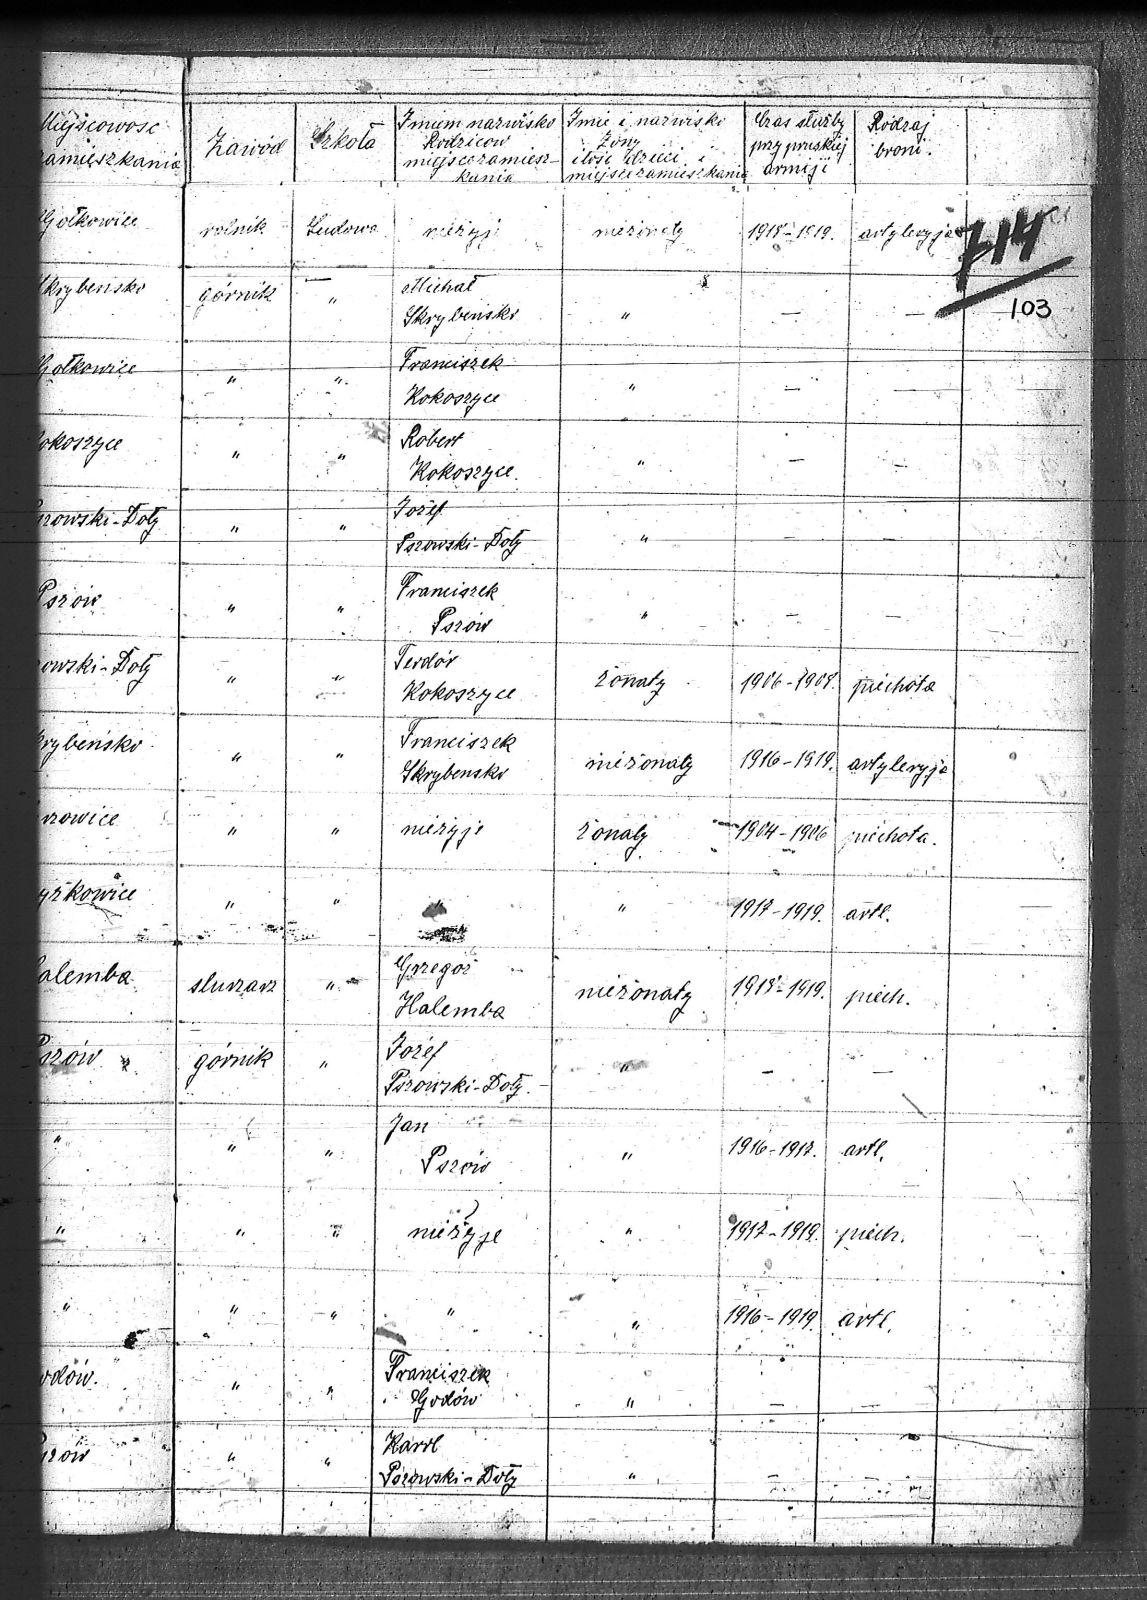 Miejscowość zamieszkania Zawód Szkoła Imię i nazwisko Rodziców miejsce zamieszkania Imie i nazwisko Żony ilość dzieci i miejsce zamieszkania Czas służby przy pruskiej armiji Rodzaj broni.
Gołkowice rolnik Ludowa nieżyji nieżonaty 1918-1919. artyleryja 714
103
Skrybeńsko górnik " Michał
Skrybeńsko " — —
Gołkowice " " Franciszek
Kokoszyce " — —
okoszyce " " Robert
Kokoszyce. " — —
szowski-Doły " " Jozéf
Pszowski-Doły " — —
Pszów " " Franciszek
Pszów " — —
owski-Doły " " Teodór
Kokoszyce żonaty 1906-1908. piechota
krybeńsko " " Franciszek
Skrybensko nieżonaty 1916-1919. artyleryja
owice " " nieżyje żonaty 1904-1906 piechota.
yżkowice " " " " 1917-1919. artl.
alemba slusarz " Grzegoż
Halemba nieżonaty 1918-1919. piech.
Pszów górnik " Jozéf
Pszowski-Doły. " — —
" " " Jan
Pszów " 1916-1917. artl.
" " " nieżyje " 1917-1919. piech.
" " " " " 1916-1919. artl.
odów. " " Franciszek
Godów " — —
szów " " Karol
Pszowski-Doły " — —